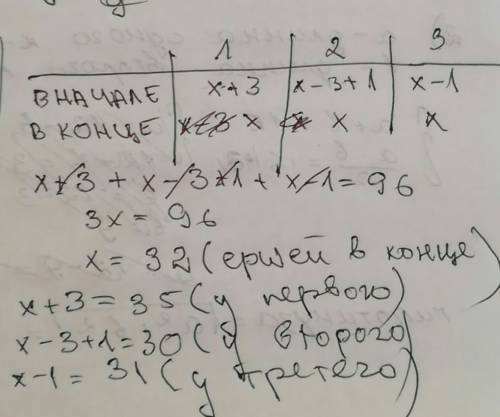 1 2 3
ВНАЧАЛЕ x+3 x-3+1 x-1
В КОНЦЕ x x x
x+3 + x-3+1 + x-1 = 96
3x = 96
x = 32 (ершей в конце)
x+3 = 35 (у первого)
x-3+1 = 30 (у второго)
x-1 = 31 (у третего)